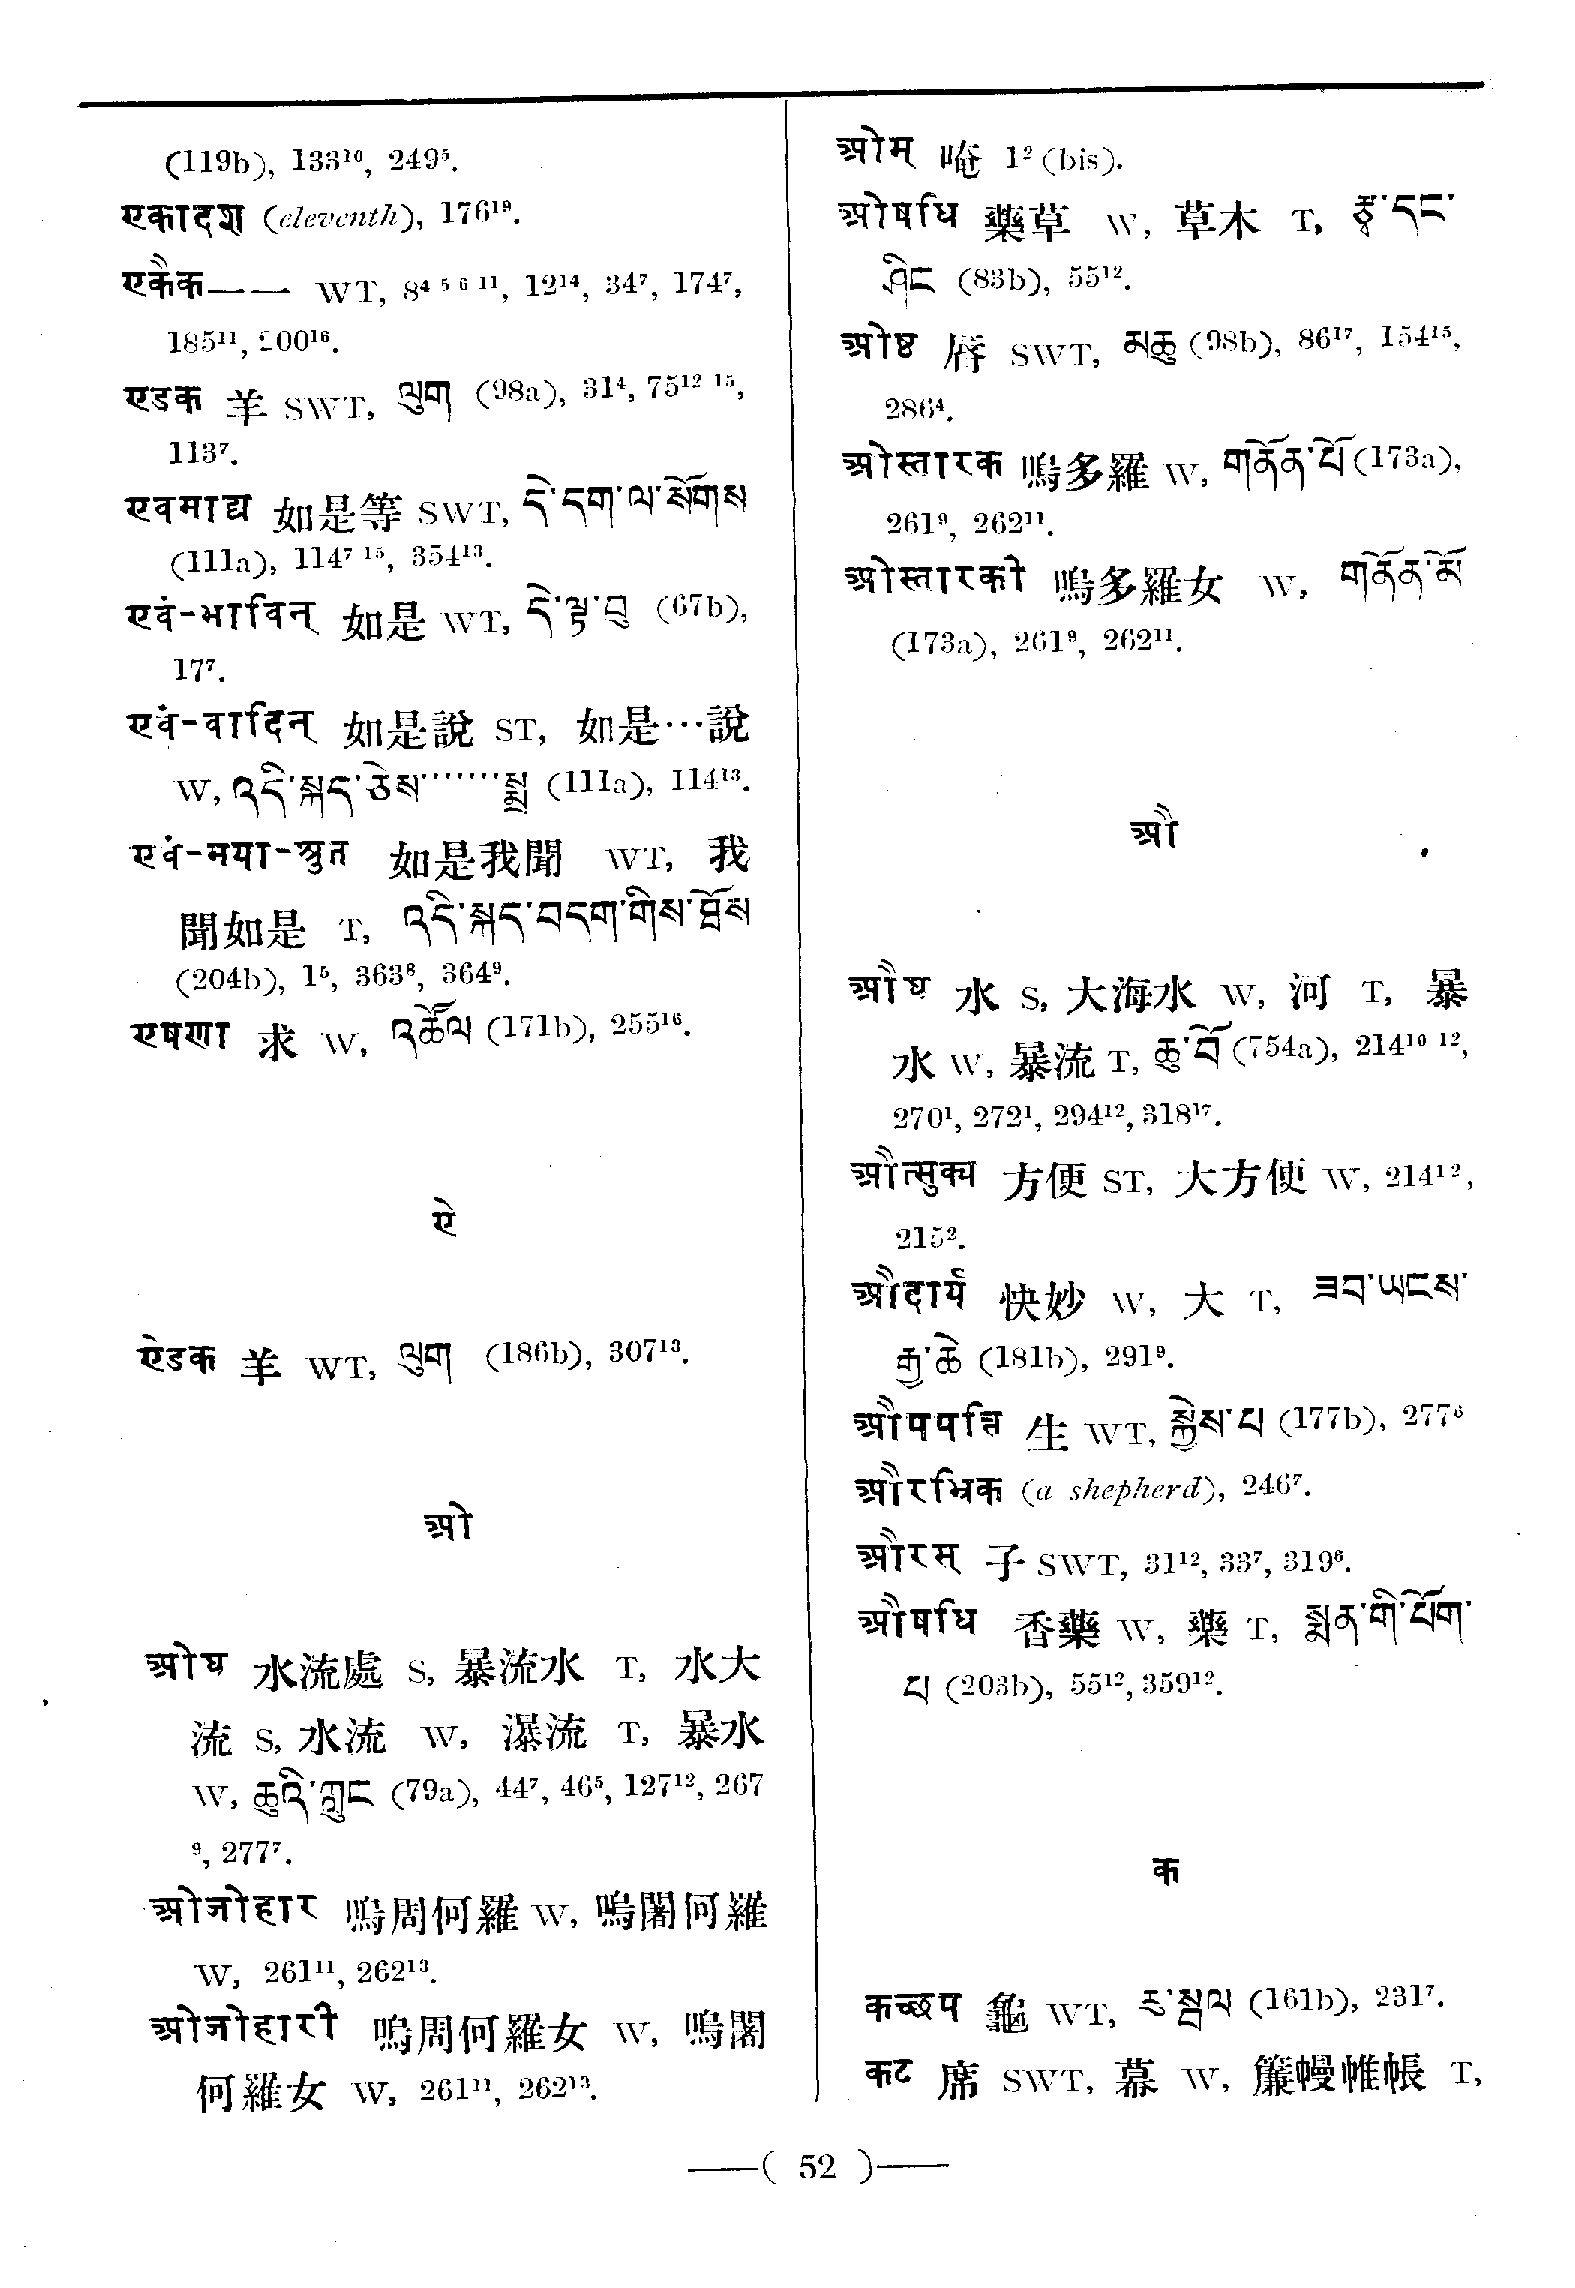 (119b), 133¹⁰, 249⁵.
एकादश (eleventh), 176¹⁹.
एकैक—— WT, 8⁴ ⁵ ⁶ ¹¹, 12¹⁴, 34⁷, 174⁷,
185¹¹, 200¹⁶.
एडक 羊 SWT, ལུག (98a), 31⁴, 75¹² ¹⁵,
113⁷.
एवमाद्य 如是等 SWT, དེ་དག་ལ་སོགས
(111a), 114⁷ ¹⁵, 354¹³.
एवं-भाविन् 如是 WT, དེ་ལྟ་བུ (67b),
17⁷.
एवं-वादिन् 如是說 ST, 如是…說
W, འདི་སྐད་ཅེས·······སྨྲ (111a), 114¹³.
एवं-मया-श्रुत 如是我聞 WT, 我
聞如是 T, འདི་སྐད་བདག་གིས་ཐོས
(204b), 1⁵, 363⁸, 364⁹.
एषणा 求 W, འཚོལ (171b), 255¹⁶.
ऐ
ऐडक 羊 WT, ལུག (186b), 307¹³.
ओ
ओघ 水流處 S, 暴流水 T, 水大
流 S, 水流 W, 瀑流 T, 暴水
W, ཆུའི་ཀླུང (79a), 44⁷, 46⁵, 127¹², 267
⁹, 277⁷.
ओजोहार 嗚周何羅 W, 嗚闍何羅
W, 261¹¹, 262¹³.
ओजोहारी 嗚周何羅女 W, 嗚闍
何羅女 W, 261¹¹, 262¹³.
ओम् 唵 1² (bis).
ओषधि 藥草 W, 草木 T, རྩྭ་དང་
ཤིང (83b), 55¹².
ओष्ठ 唇 SWT, མཆུ (98b), 86¹⁷, 154¹⁵,
286⁴.
ओस्तारक 嗚多羅 W, གནོན་པོ (173a),
261⁹, 262¹¹.
ओस्तारकी 嗚多羅女 W, གནོན་མོ
(173a), 261⁹, 262¹¹.
औ
औघ 水 S, 大海水 W, 河 T, 暴
水 W, 暴流 T, ཆུ་བོ (754a), 214¹⁰ ¹²,
270¹, 272¹, 294¹², 318¹⁷.
औत्सुक्य 方便 ST, 大方便 W, 214¹²,
215².
औदार्य 快妙 W, 大 T, ཟབ་ཡངས་
རྒྱ་ཆེ (181b), 291⁹.
औपपत्ति 生 WT, སྐྱེས་པ (177b), 277⁶
औरभ्रिक (a shepherd), 246⁷.
औरस् 子 SWT, 31¹², 33⁷, 319⁶.
औषधि 香藥 W, 藥 T, སྨན་གི་པོག་
པ (203b), 55¹², 359¹².
क
कच्छप 龜 WT, རུ་སྦལ (161b), 231⁷.
कट 席 SWT, 幕 W, 簾幔帷帳 T,
——( 52 )——